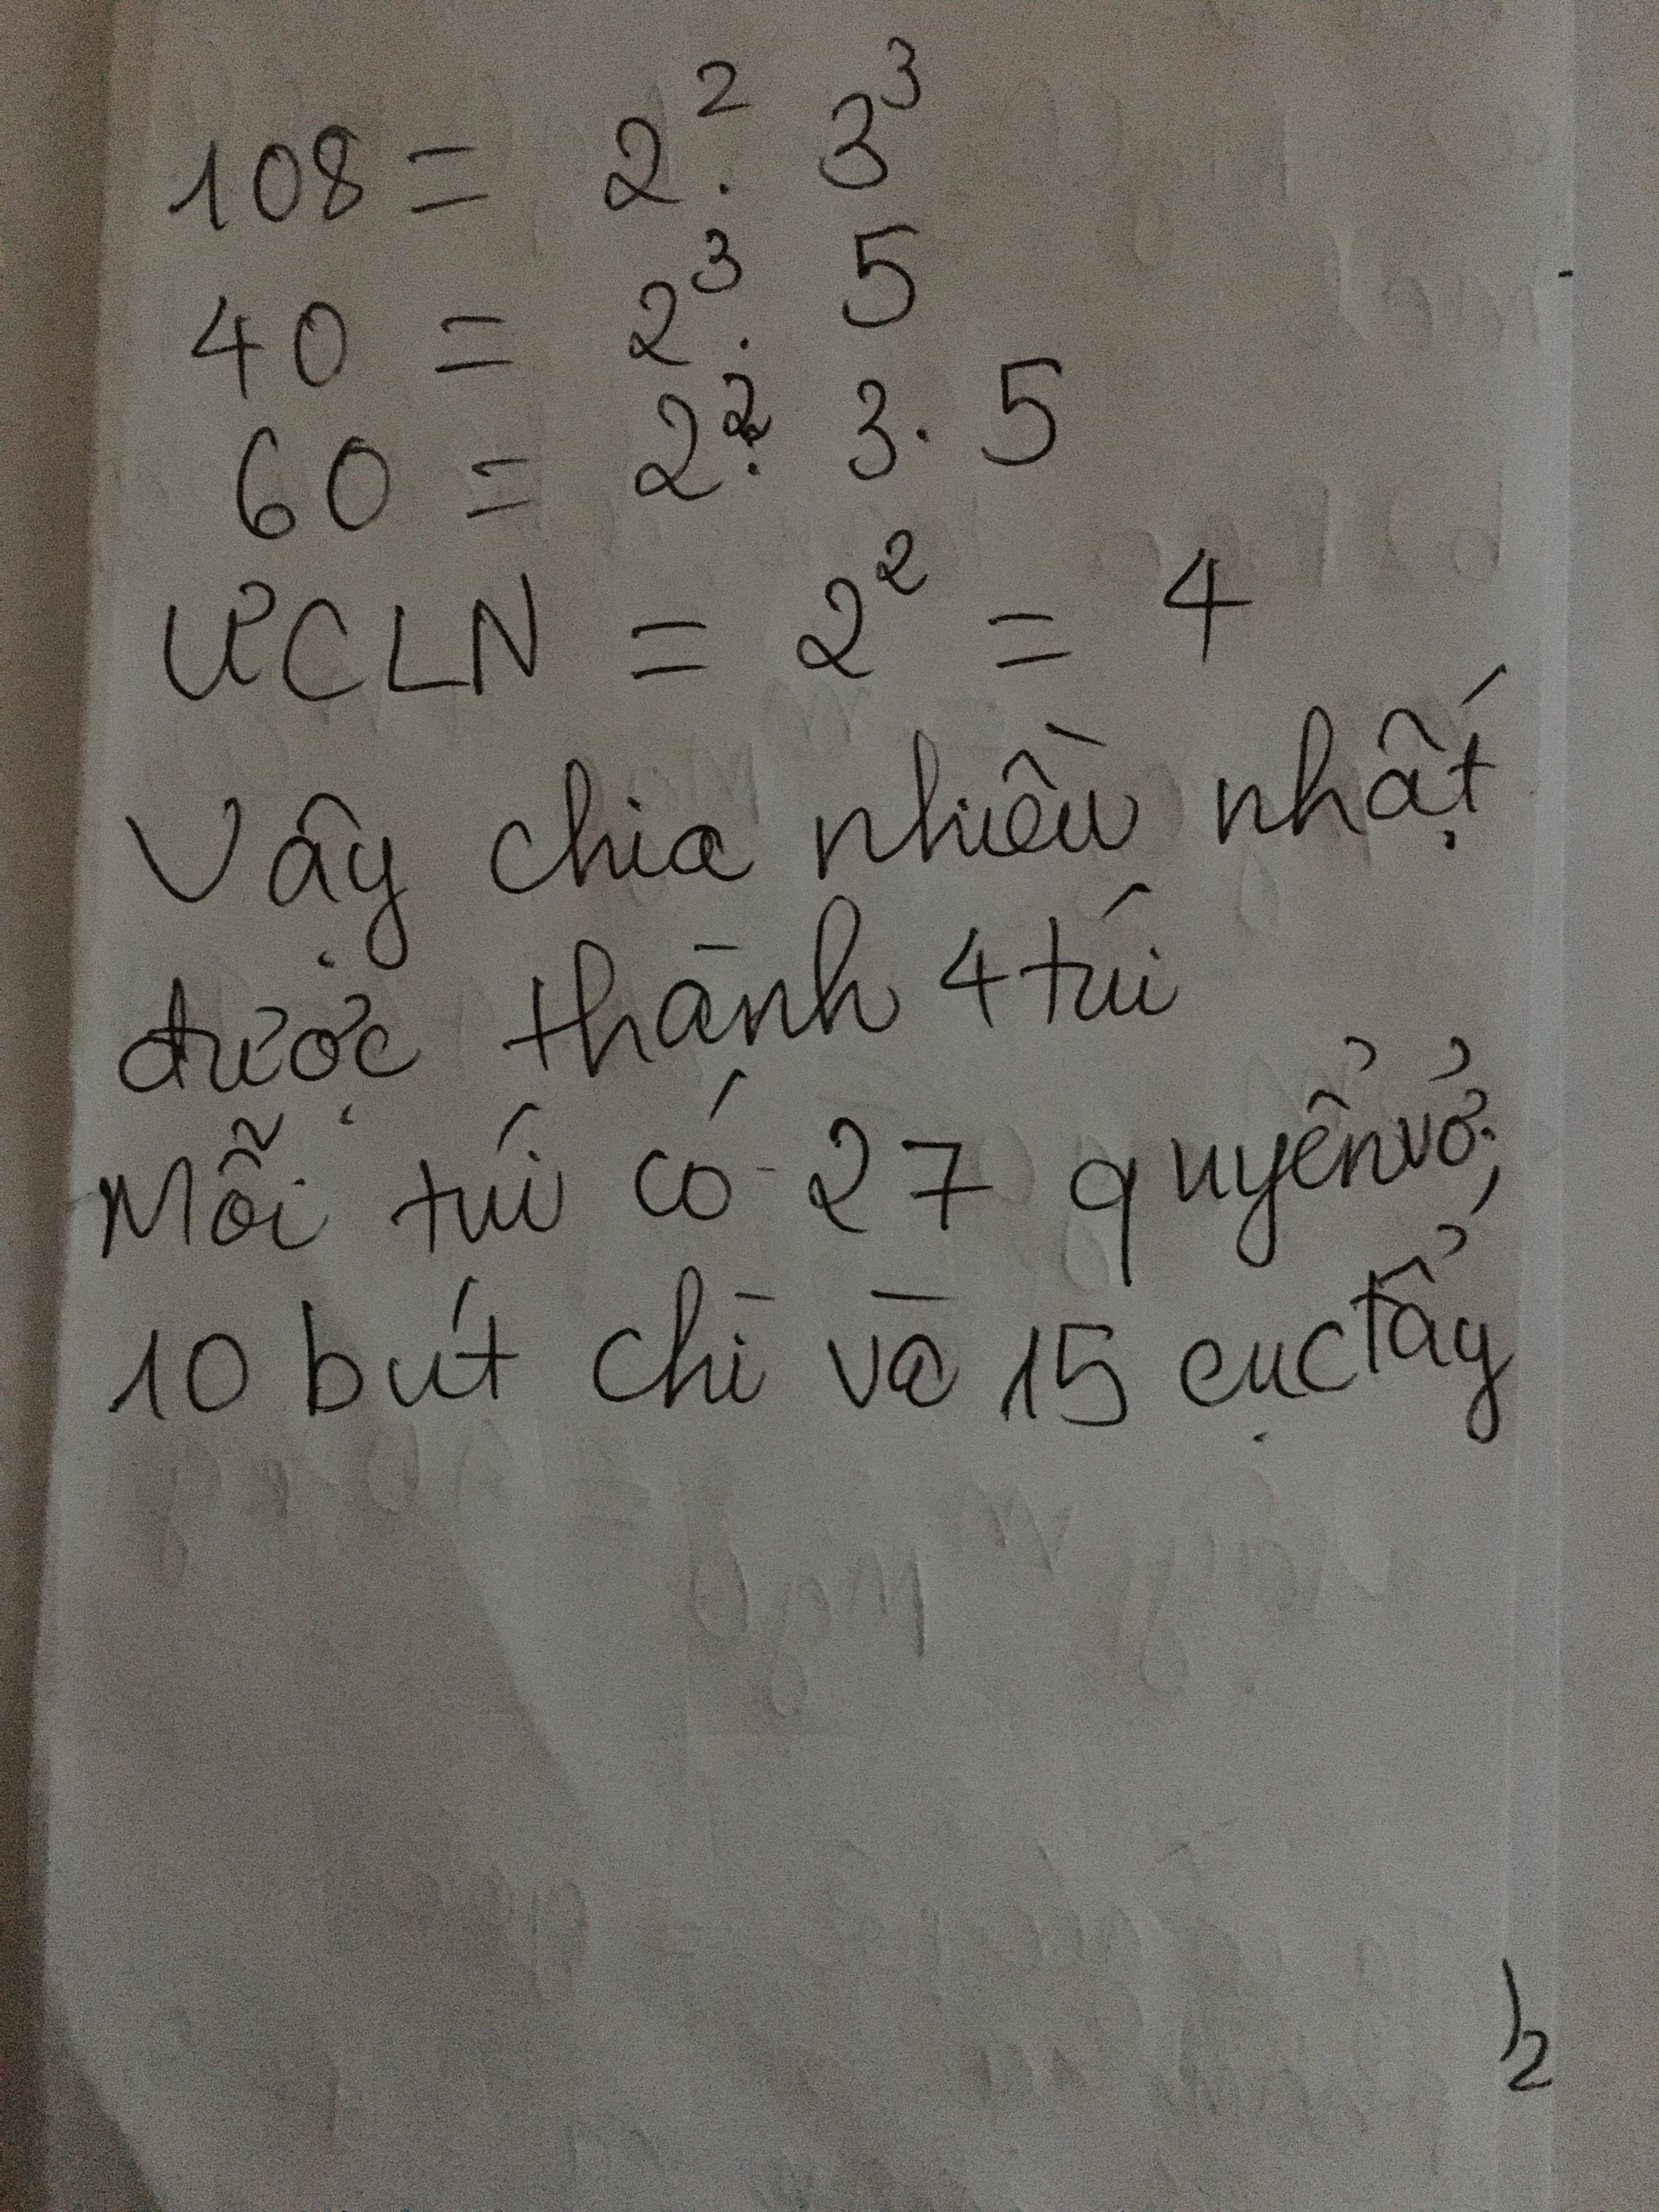 108 = 2². 3³
40 = 2³. 5
60 = 2². 3. 5
ƯCLN = 2² = 4
Vậy chia nhiều nhất
được thành 4 túi
Mỗi túi có 27 quyển vở,
10 bút chì và 15 cục tẩy